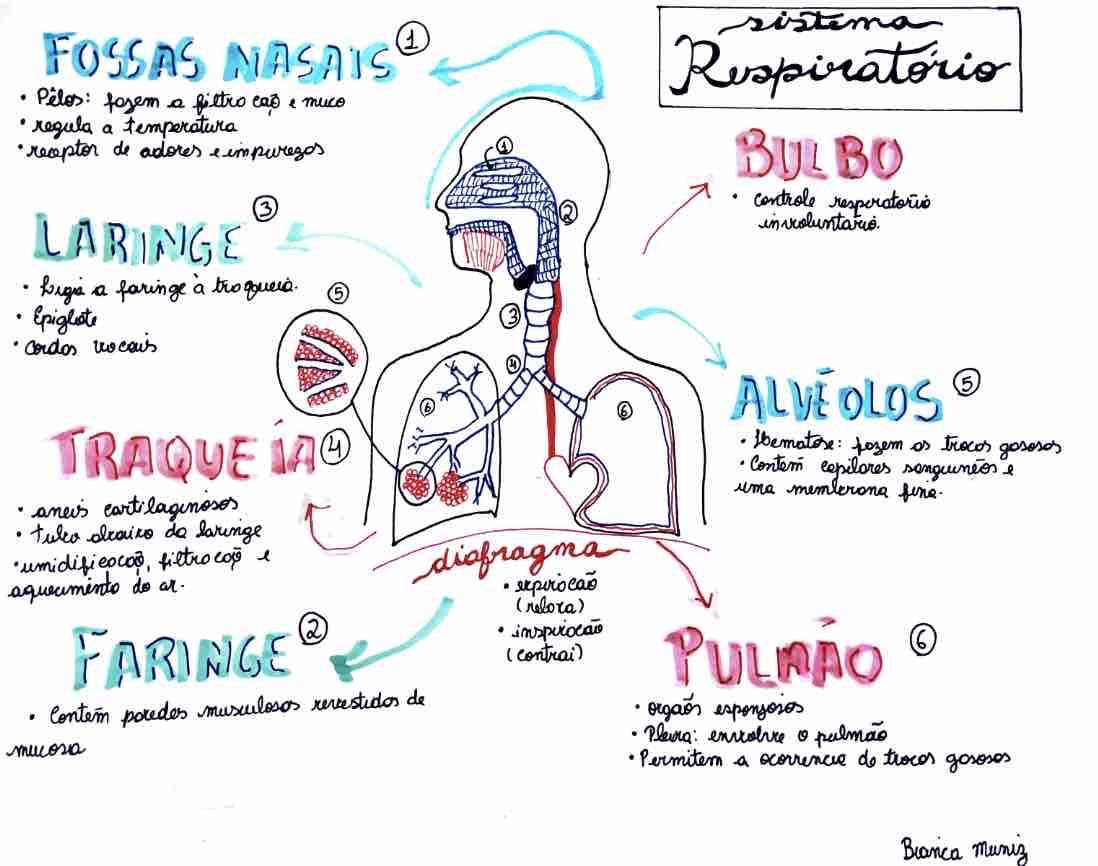 sistema
Respiratório
FOSSAS NASAIS 1
• Pêlos: fazem a filtro ção e muco
• regula a temperatura
• receptor de odores e impurezas
LARINGE 3
• Liga a faringe à traqueia.
• Epiglote
• Cordas vocais
TRAQUEÍA 4
• aneis cartilaginosos
• tubo abaixo da laringe
• umidificação, filtração e
aquecimento do ar.
FARINGE 2
• Contém paredes musculosas revestidas de
mucosa
1
2
3
4
5
6
6
diafragma
• expiração
(relaxa)
• inspiração
(contrai)
BULBO
• controle respiratorio
involuntario.
ALVÉOLOS 5
• Hematose: fazem as trocas gasosas
• Contém capilares sanguíneos e
uma membrana fina.
PULMÃO 6
• orgaõs esponjosos
• Pleura: envolve o pulmão
• Permitem a ocorrencia de trocas gasosas
Bianca Muniz